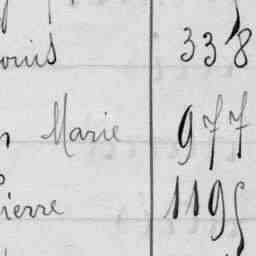 ouis 338
Marie 977
ierre 1195